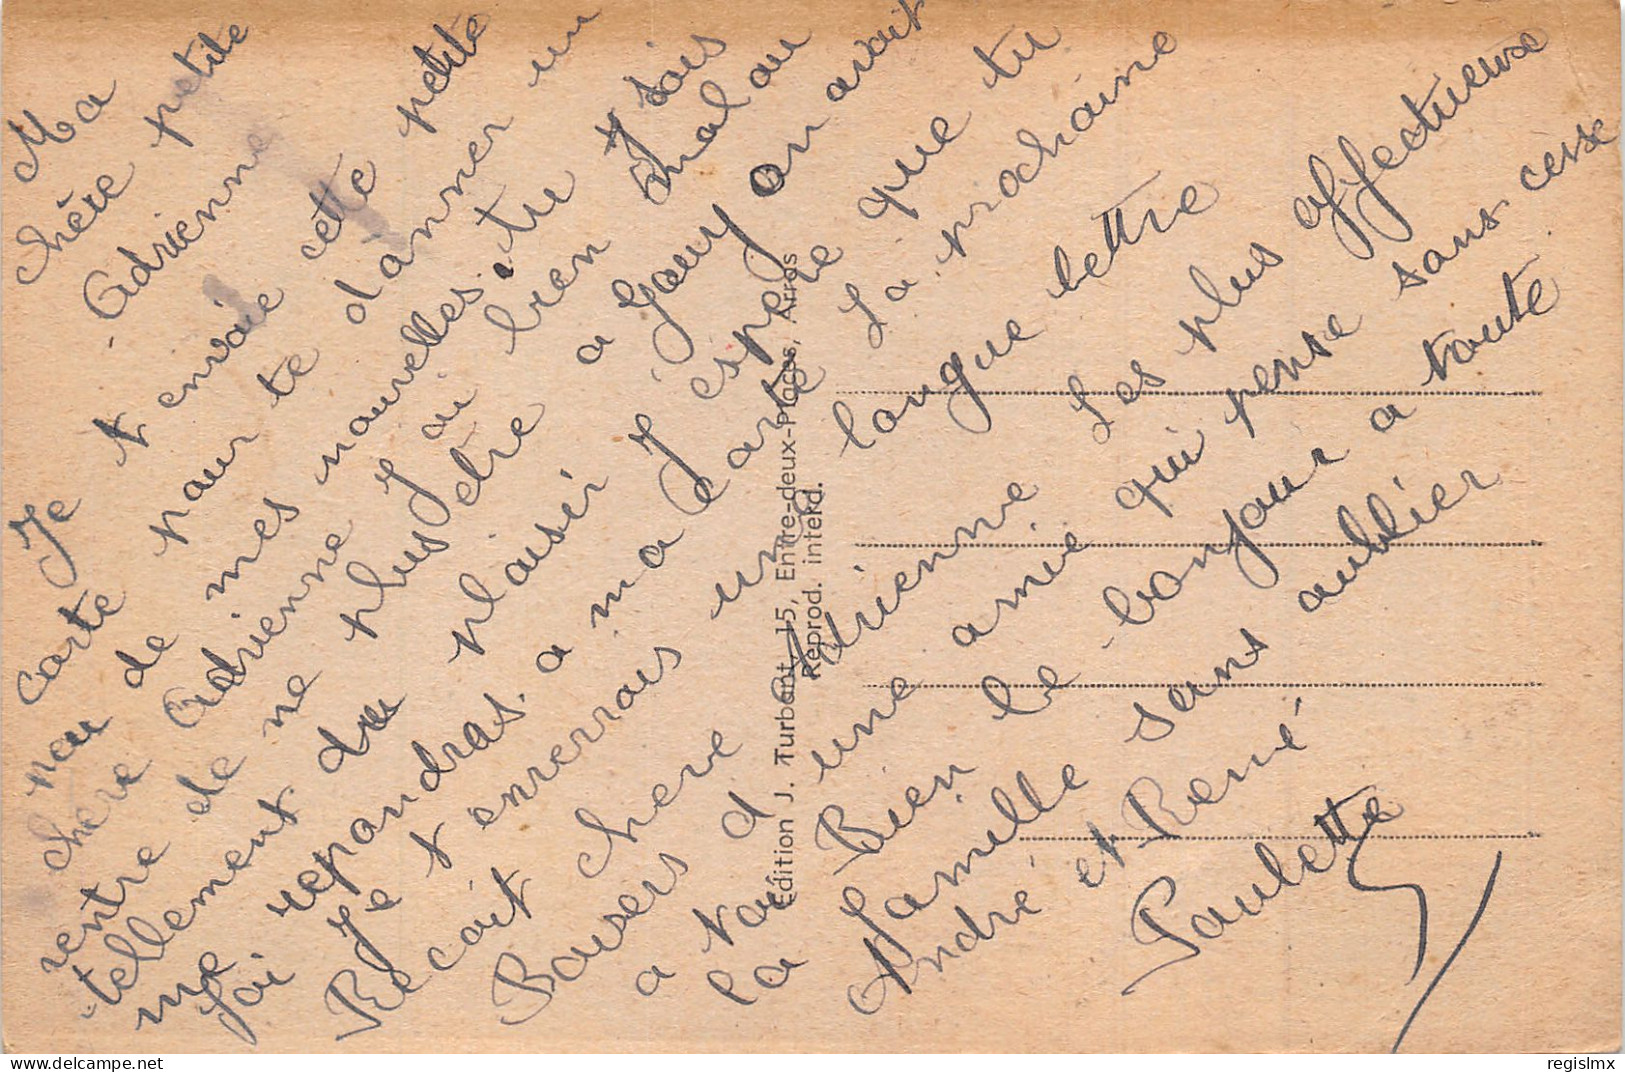 Ma
chère petite
Adrienne
Je t envoie cette petite
carte pour te dânner un
peu de mes nouvelles, tu
chere Adrienne J ai bien mal au
ventre de ne plus être a Gouy on avait
tellement du plaisir J espere que tu
me repondras a ma carte La prochaine
Je t enverrais une longue lettre
Recoit chere Adrienne Les plus affectueuse
Baisers d une amie qui pense sans cesse
a toi Bien le bonjour a toute
la famille sans oublier
André et René
Paulette
Edition J. Turbant, 15, Entre-deux-Places, Arras
Reprod. interd.
regislmx